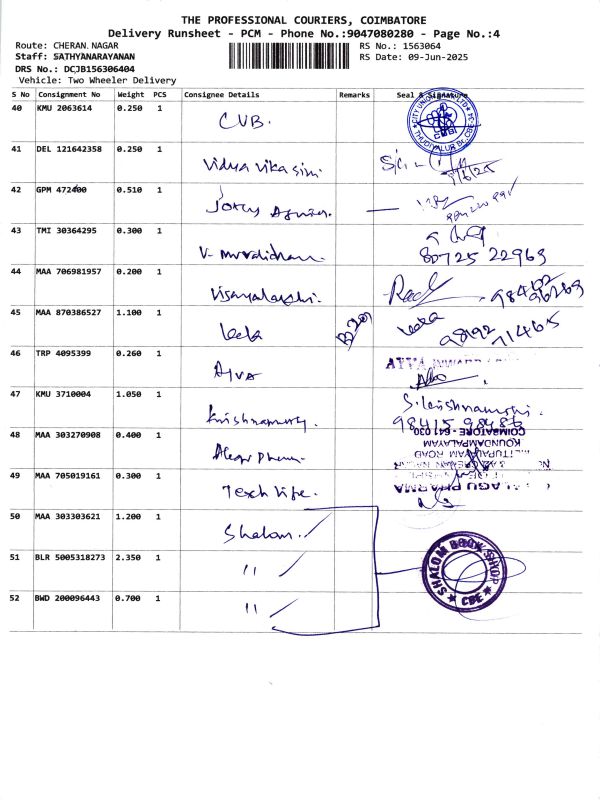 THE PROFESSIONAL COURIERS, COIMBATORE
Delivery Runsheet - PCM - Phone No.:9047080280 - Page No.:4
Route: CHERAN.NAGAR RS No.: 1563064
Staff: SATHYANARAYANAN RS Date: 09-Jun-2025
DRS No.: DCJB156306404
Vehicle: Two Wheeler Delivery
S No Consignment No Weight PCS Consignee Details Remarks Seal & Signature
40 KMU 2063614 0.250 1
CUB.
CITY UNION LTD THUDIYALUR Br. CBE-34 CUB
41 DEL 121642358 0.250 1
Vidya Vikasini.
9/6/25
42 GPM 472400 0.510 1
43 TMI 30364295 0.300 1
V. Muralidharan.
80725 22963
44 MAA 706981957 0.200 1
Vijayalakshmi.
45 MAA 870386527 1.100 1
Leela B201 Leela
98192 71465
46 TRP 4095399 0.260 1
Ayva
AYVA
47 KMU 3710004 1.050 1
Krishnamurthy.
S. Krishnamurthi.
98415 98486
48 MAA 303270908 0.400 1
COIMBATORE - 641 030
KOUNDAMPALAYAM
METTUPALAYAM ROAD
49 MAA 705019161 0.300 1
Tech Vibe.
ALAGU PHARMA
50 MAA 303303621 1.200 1
Shalom.
51 BLR 5005318273 2.350 1
"
SHALOM BOOK SHOP
★ CBE ★
52 BWD 200096443 0.700 1
"